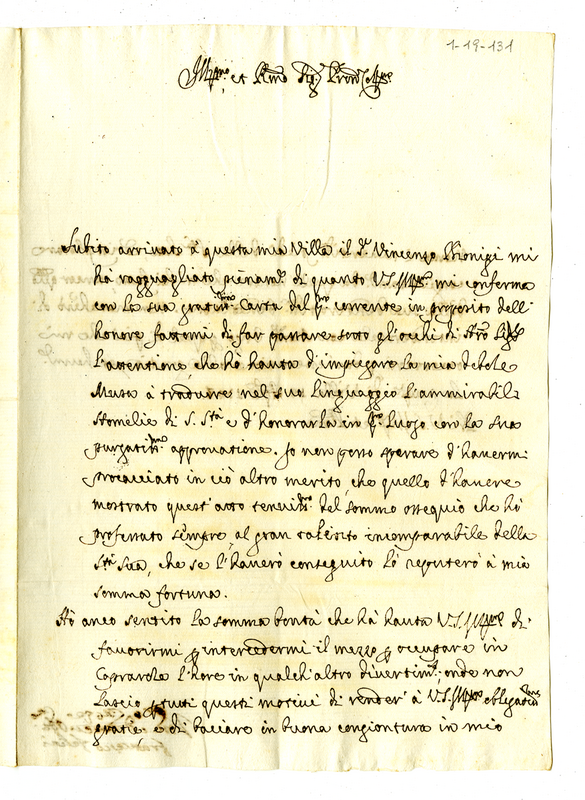 1-19-131
Ill.mo et R.mo Sig.
Subito arrivato à questa mia Villa il S.r Vincenzo Dionigi mi
hà ragguagliato pienam.te di quanto V.S. Ill.ma mi conferma
con la sua gratiss.ma Carta del p.mo corrente in proposito dell'
honore fattomi di far passare sotto gl'occhi di N.ro Sig.re
l'attentione che hò hauta d'impiegare la mia debole
Musa à tradurre nel suo linguaggio l'ammirabili
Homelie di S. S.tà e d'honorarla in q.to luogo con la sua
purgatis.ma approuatione. Io non posso sperare d'hauermi
procacciato in ciò altro merito, che quello d'hauere
mostrato quest'atto tenuiss.mo del sommo ossequio che hò
professato sempre al gran incomparabile della
S.tà Sua, che se l'hauerò conseguito lo reputerò à mia
somma fortuna.
Hò anco sentito la somma bontà che hà hauta V.S. Ill.ma di
fauorirmi p intercedermi il mezzo p occupare in
l'hore in qualch'altro divertim.to; onde non
lascio p tutti questi motiui di render' à V.S. Ill.ma obligatis.me
gratie, e di baciare in buona congiontura in mio